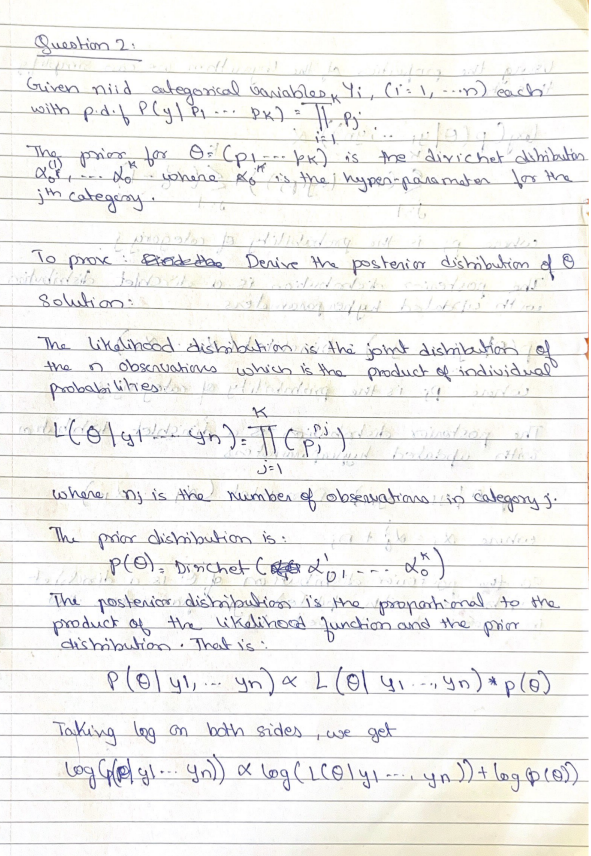 Question 2:
Given niid categorical variables, Yi, (i=1, ...n) each
with p.d.f P(y | P1 ... PK) = ∏_{i=1}^{K} Pj
The prior for θ = (p1 ... pK) is the dirichet ditribution
α0^(1), ... α0^K. where α0^K is the hyper-parameter for the
jth category.
To prove: Derive the posterior distribution of θ
Solution:
The likelihood distribution is the joint distribution of
the n observations which is the product of individual
probabilities.
L(θ | y1 ... yn) = ∏_{j=1}^{K} (P_j^{nj})
where, nj is the number of observations in category j.
The prior distribution is:
p(θ) = Dirichet (α0^1, ... α0^K)
The posterior distribution is the proportional to the
product of the likelihood function and the prior
distribution. That is:
P(θ | y1, ... yn) ∝ L(θ | y1 ..., yn) * p(θ)
Taking log on both sides, we get
log(p(θ | y1 ... yn)) ∝ log(L(θ | y1 ..., yn)) + log(p(θ))